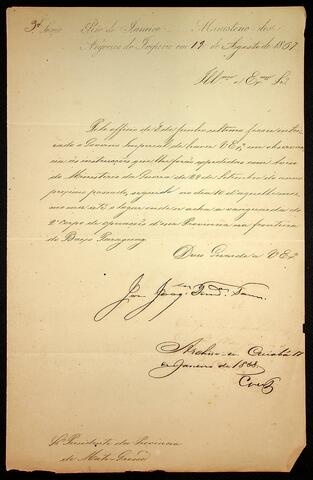 3ª Secção Rio de Janeiro Ministerio dos
Negocios do Imperio em 19 de Agosto de 1867
Illmo e Exmo Sr.
Pelo officio de 8 de Junho ultimo ficou intei
rado o Governo Imperial de haver V Exª em observan
cia ás instrucções que lhe forão expedidas em Aviso
do Ministerio da Guerra de 29 de Setembro do anno
proximo passado, seguido no dia 10 d'aquelle mez
até o lugar onde se acha a vanguarda do
2º corpo de operações d'essa Provincia na fronteira
do Baixo Paraguay.
Deos Guarde a V Exª
José Joaqm
Archive-se Cuiabá
de Janeiro de 1868
Sr. Presidente da Provincia
de Mato-Grosso